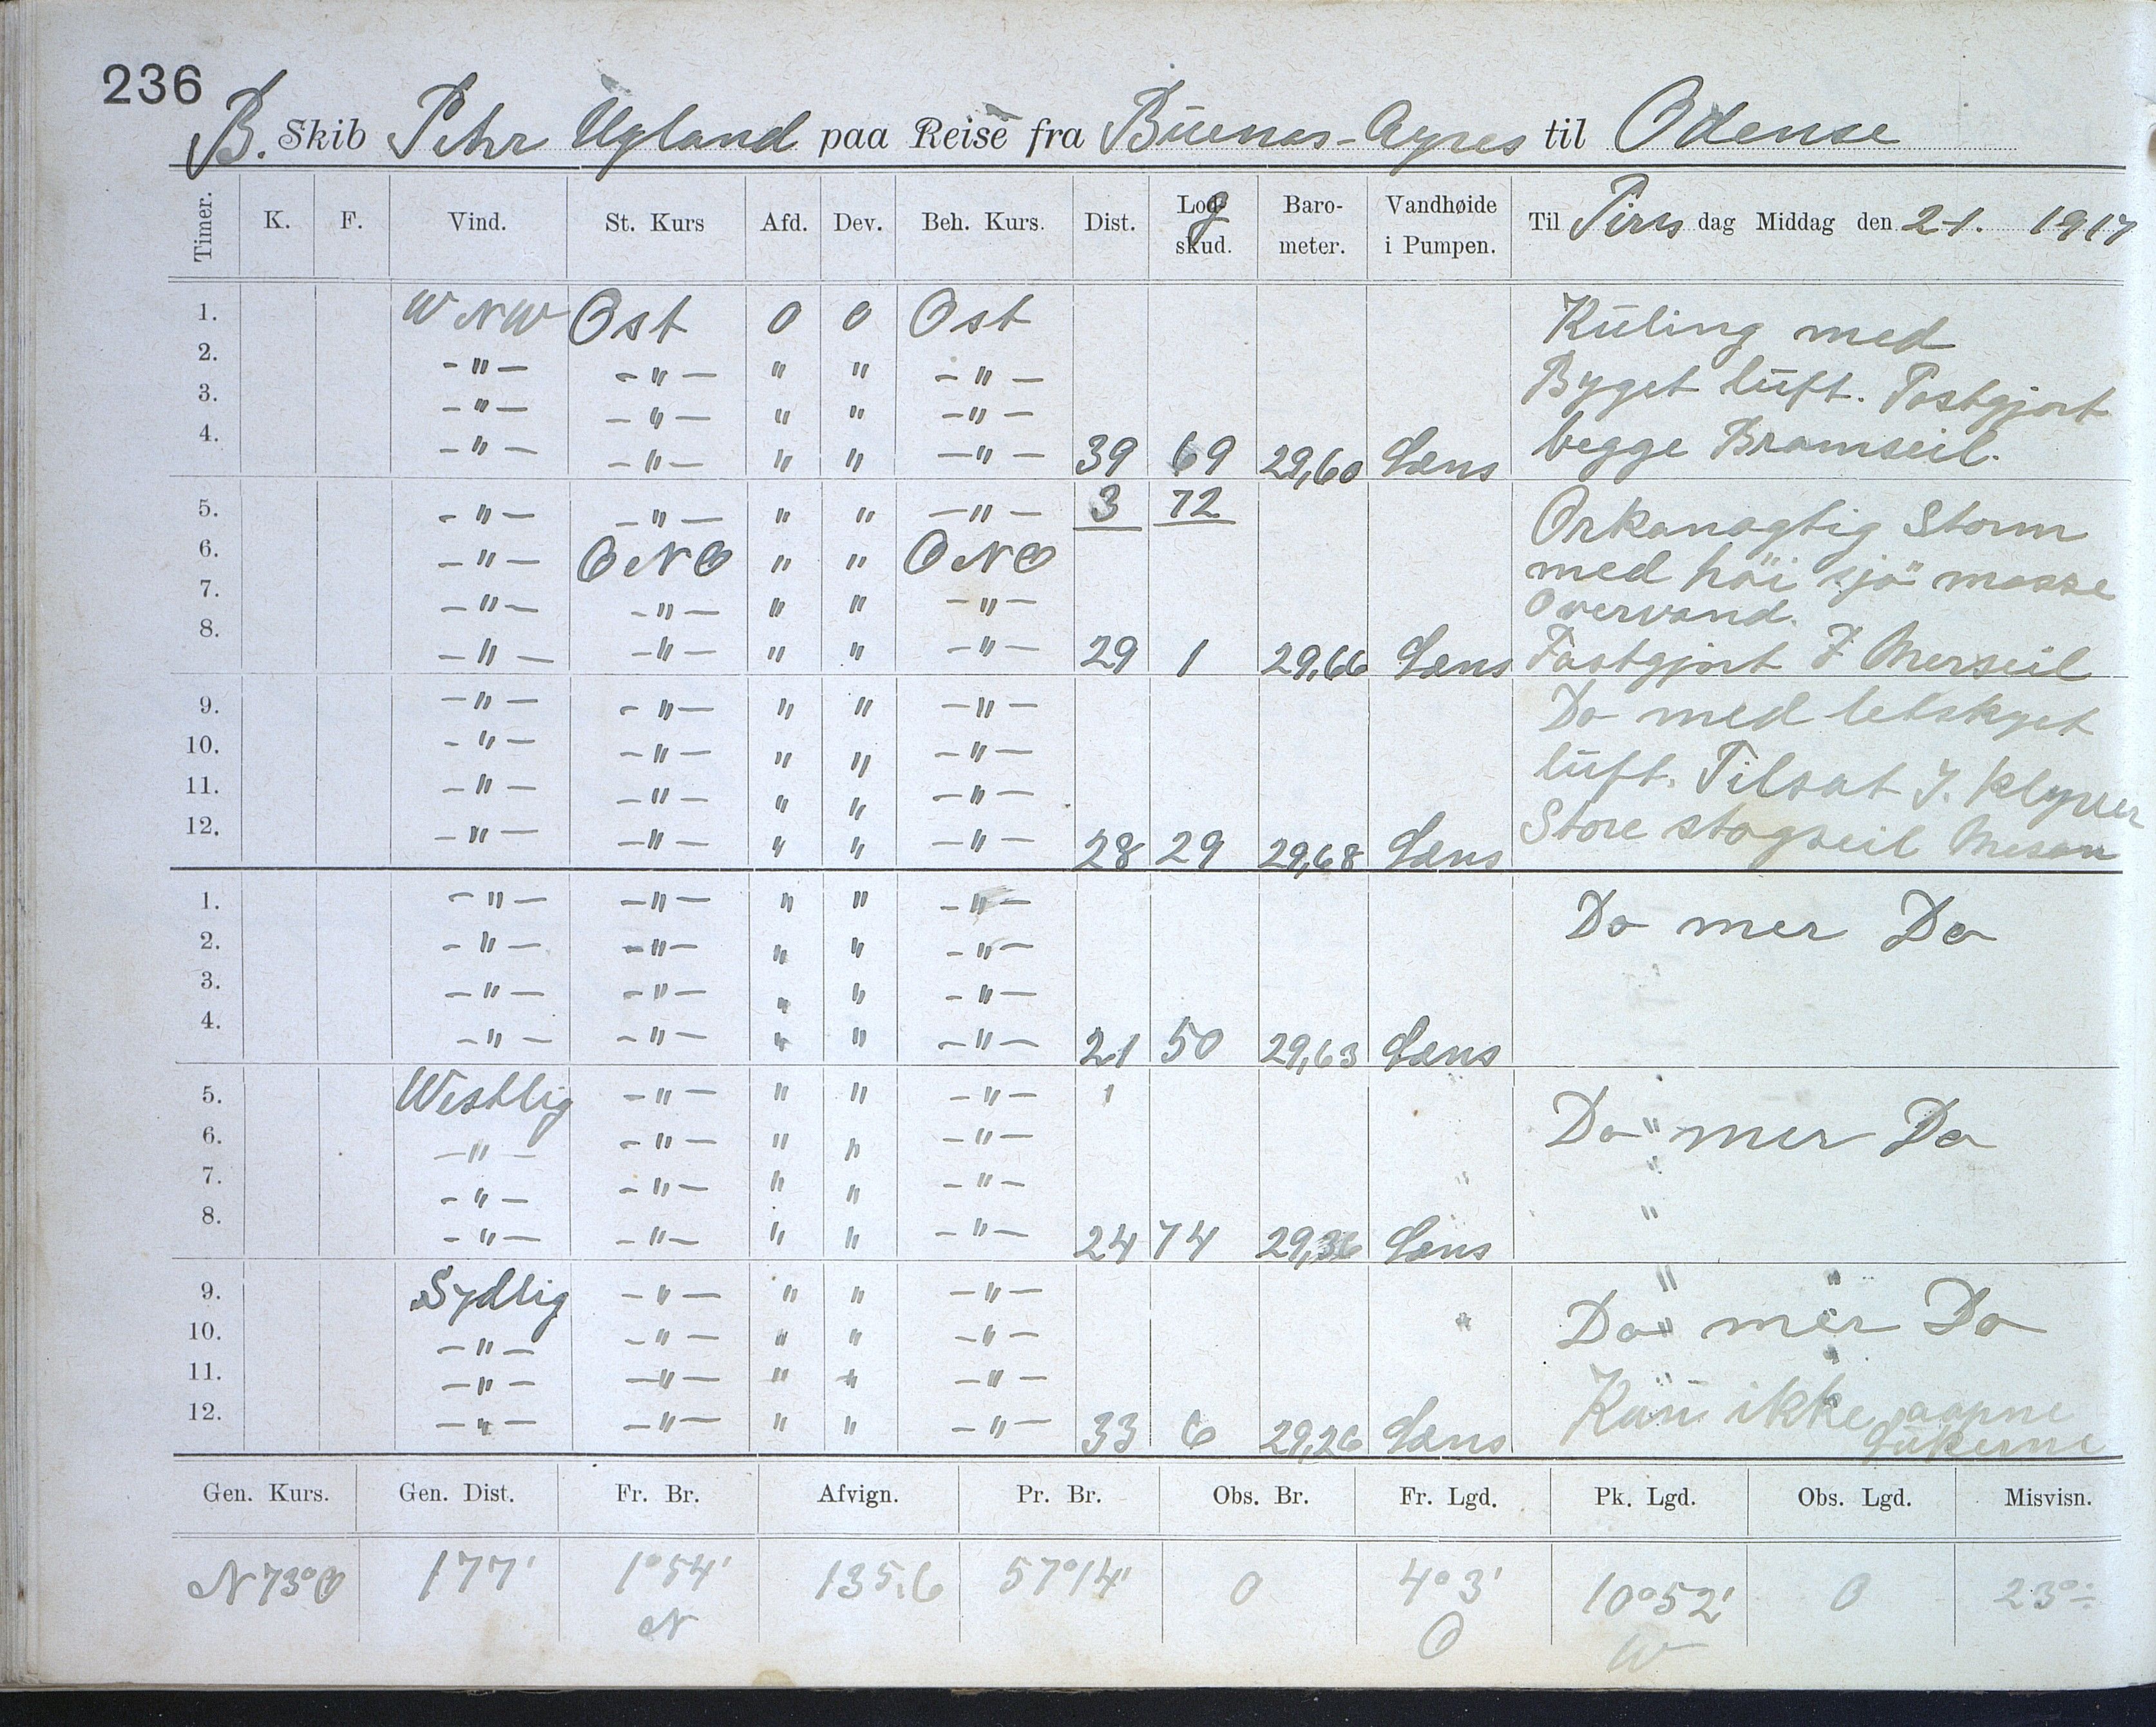 236
B. Skib Pehr Ugland paa Reise fra Buenos-Ayres til Odense
Timer. K. F. Vind. St. Kurs Afd. Dev. Beh. Kurs. Dist. Log skud. Baro- meter. Vandhøide i Pumpen. Til Tirs dag Middag den 2-1. 1917
1. WNW Ost 0 0 Ost Kūling med
2. -"- -"- " " -"- Byget lūft. Fastgjort
3. -"- -"- " " -"-
4. -"- -"- " " -"- 39 69 29,60 Læns begge Bramseil.
5. -"- -"- " " -"- 3 72 Orkanagtig Storm
6. -"- ONO " " ONO med höi sjö masse
7. -"- -"- " " -"- Overvand.
8. -"- -"- " " -"- 29 1 29,66 Læns Fastgjort F Merseil
9. -"- -"- " " -"- Do med letskyet
10. -"- -"- " " -"- lūft. Tilsat I. Klyver
11. -"- -"- " " -"-
12. -"- -"- " " -"- 28 29 29,68 Læns Store stagseil Mesan
1. -"- -"- " " -"- Do mer Do
2. -"- -"- " " -"-
3. -"- -"- " " -"-
4. -"- -"- " " -"- 21 50 29,63 Læns
5. Westlig -"- " " -"- 1
6. -"- -"- " " -"- Do mer Do
7. -"- -"- " " -"-
8. -"- -"- " " -"- 24 74 29,36 Læns
9. Sydlig -"- " " -"-
10. -"- -"- " " -"- Do mer Do
11. -"- -"- " " -"-
12. -"- -"- " " -"- 33 6 29,26 Læns Kan ikke aapne
Lūkerne
Gen. Kurs. Gen. Dist. Fr. Br. Afvign. Pr. Br. Obs. Br. Fr. Lgd. Pk. Lgd. Obs. Lgd. Misvisn.
N73°O 177' 1°54' 135,6 57°14' 0 4°3' 10°52' 0 23°÷
N O W